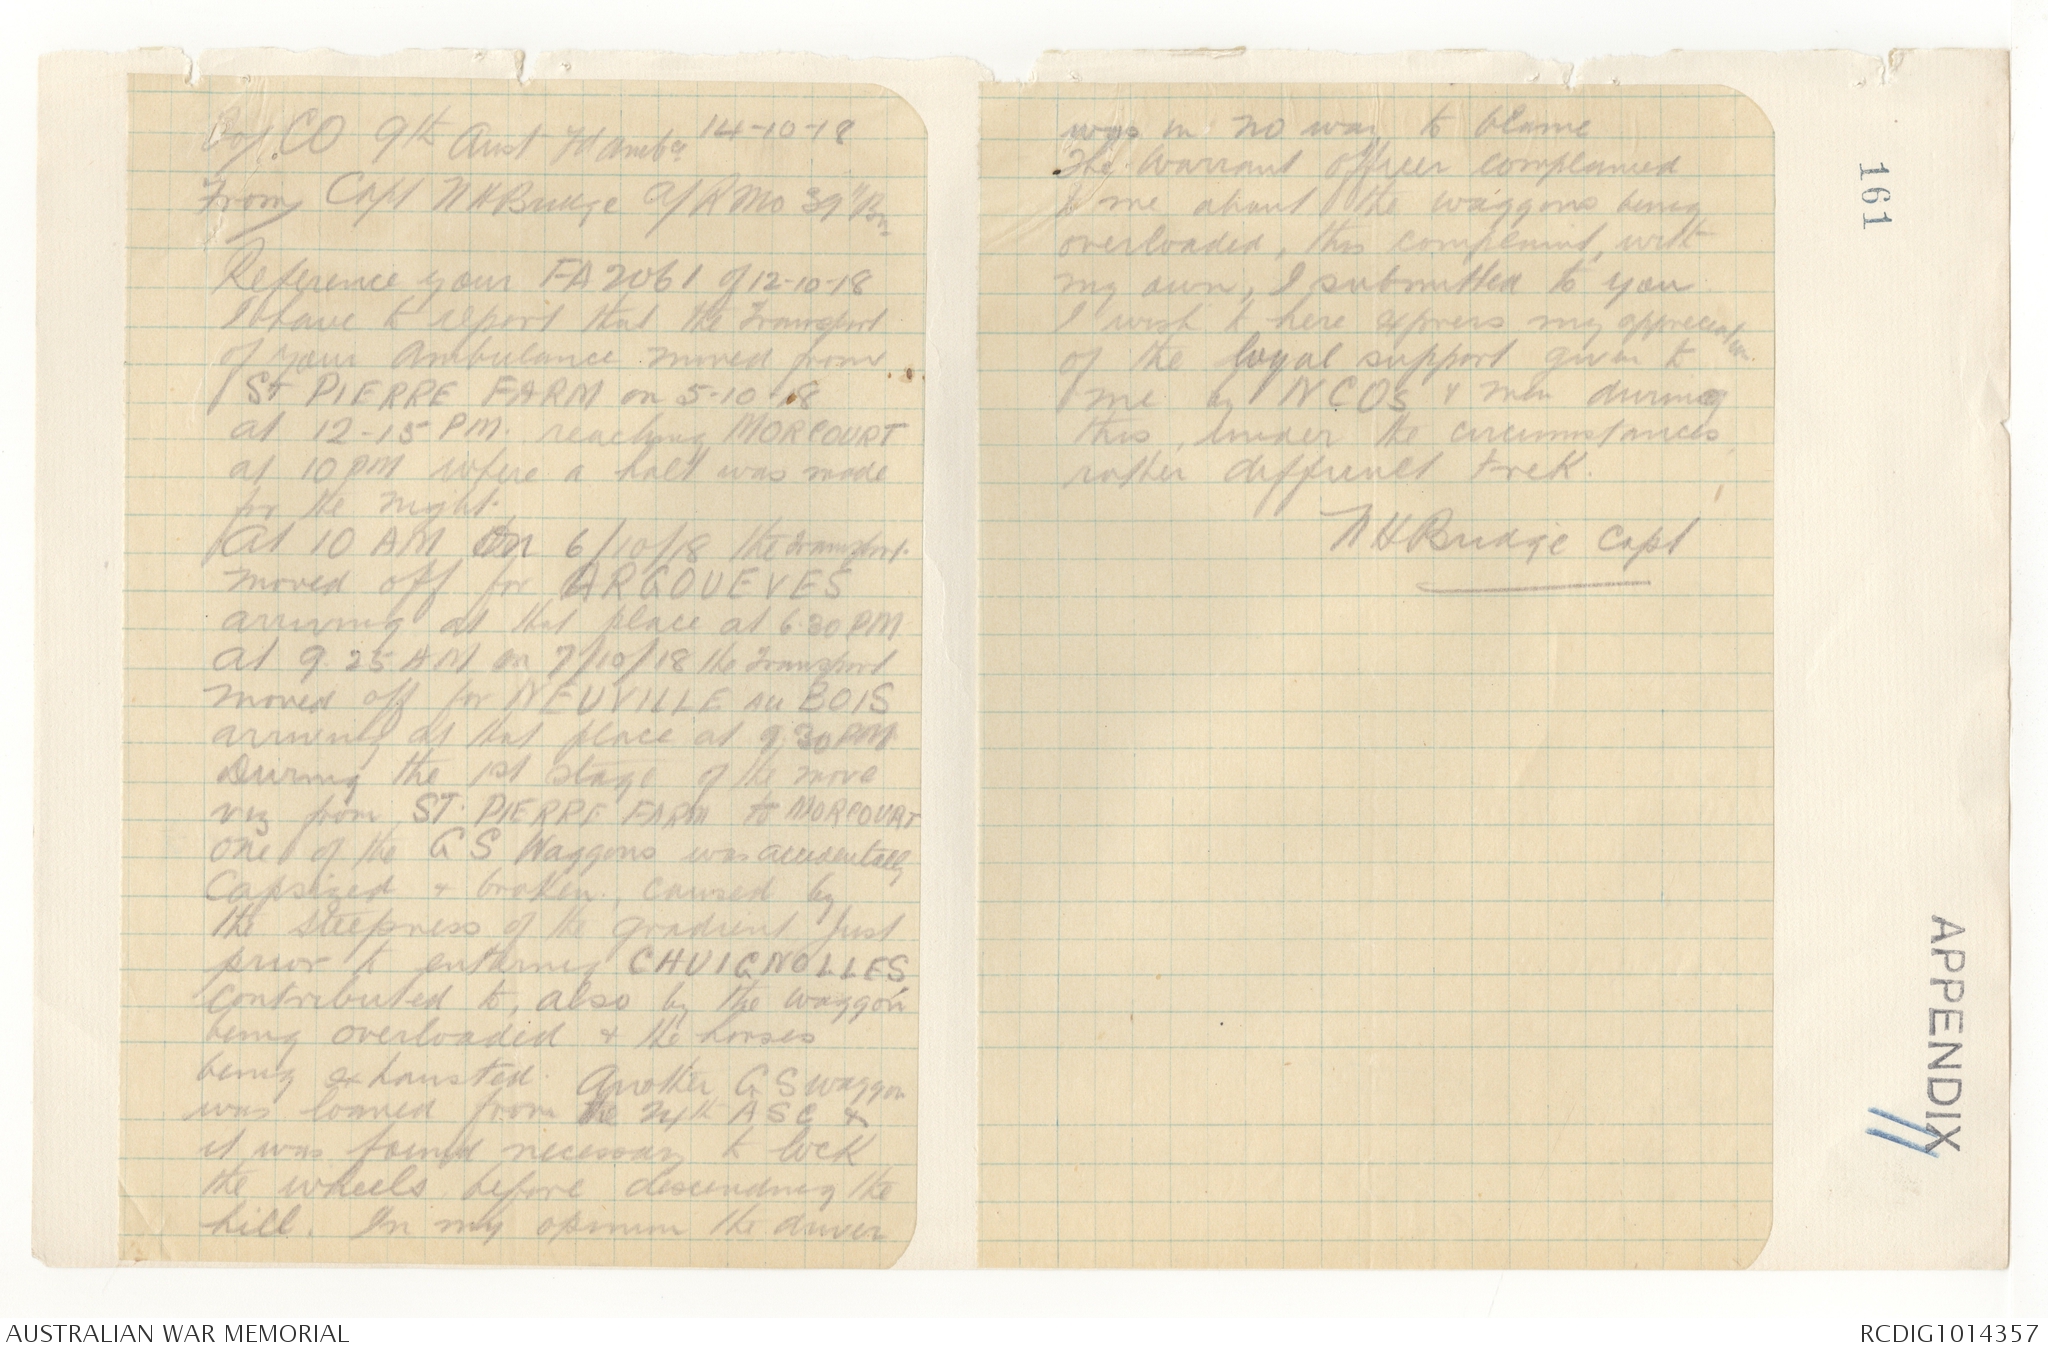 To/ CO 9th Aust Fd Ambce 14-10-18
From/ Capt N H Bridge a/RMO 39th Bn
Reference your FA 2061 of 12-10-18
I have to report that the Transport
of your Ambulance moved from
St PIERRE FARM on 5-10-18
at 12-15 PM. reaching MORCOURT
at 10 PM where a halt was made
for the night.
At 10 AM on 6/10/18 the transport
moved off for ARGOUEVES
arriving at that place at 6.30 PM
at 9.25 AM on 7/10/18 the Transport
moved off for NEUVILLE au BOIS
arriving at that place at 9.30 PM
During the 1st stage of the move
viz from ST. PIERRE FARM to MORCOURT
one of the GS Waggons was accidentally
Capsized & broken, caused by
the steepness of the gradient just
prior to entering CHUIGNOLLES,
contributed to, also by the waggon
being overloaded & the horses
being exhausted. Another GS waggon
was loaned from the 24th ASC &
it was found necessary to lock
the wheels before descending the
hill. In my opinion the driver
was in no way to blame
The Warrant officer complained
to me about the waggons being
overloaded, this complaint, with
my own, I submitted to you.
I wish to here express my appreciation
of the loyal support given to
me by NCOs & men during
this, under the circumstances,
rather difficult trek.
N H Bridge Capt
161
APPENDIX
11
AUSTRALIAN WAR MEMORIAL
RCDIG1014357